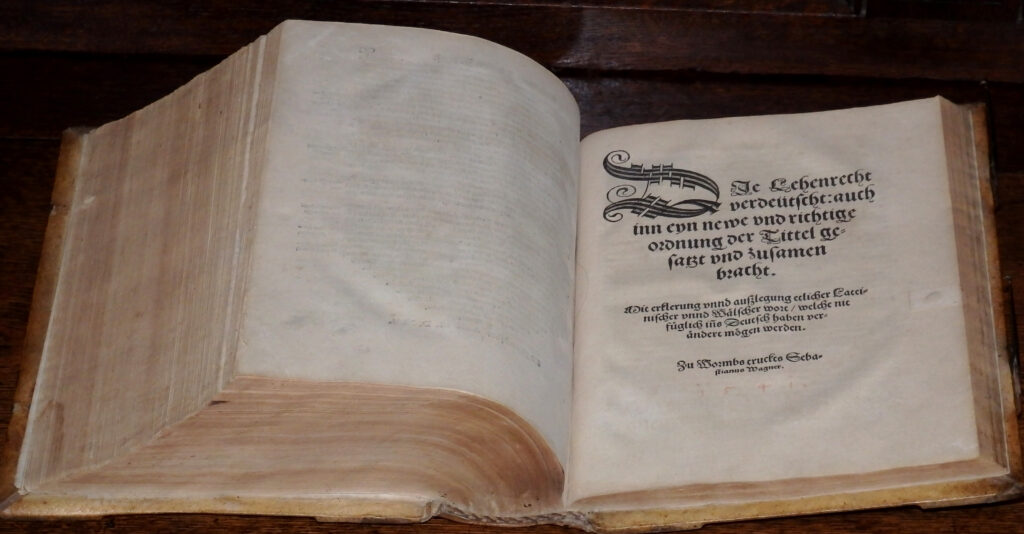 Die Lehenrecht
verdeutscht: auch
inn eyn newe vnd richtige
ordnung der Tittel ge-
satzt vnd zusamen
bracht.
Mit erklerung vnnd außlegung etlicher Latei-
nischer vnnd Wälscher wort / welche nit
füglich ins Deutsch haben ver-
ändert mögen werden.
Zu Wormbs truckts Seba-
stianus Wagner.